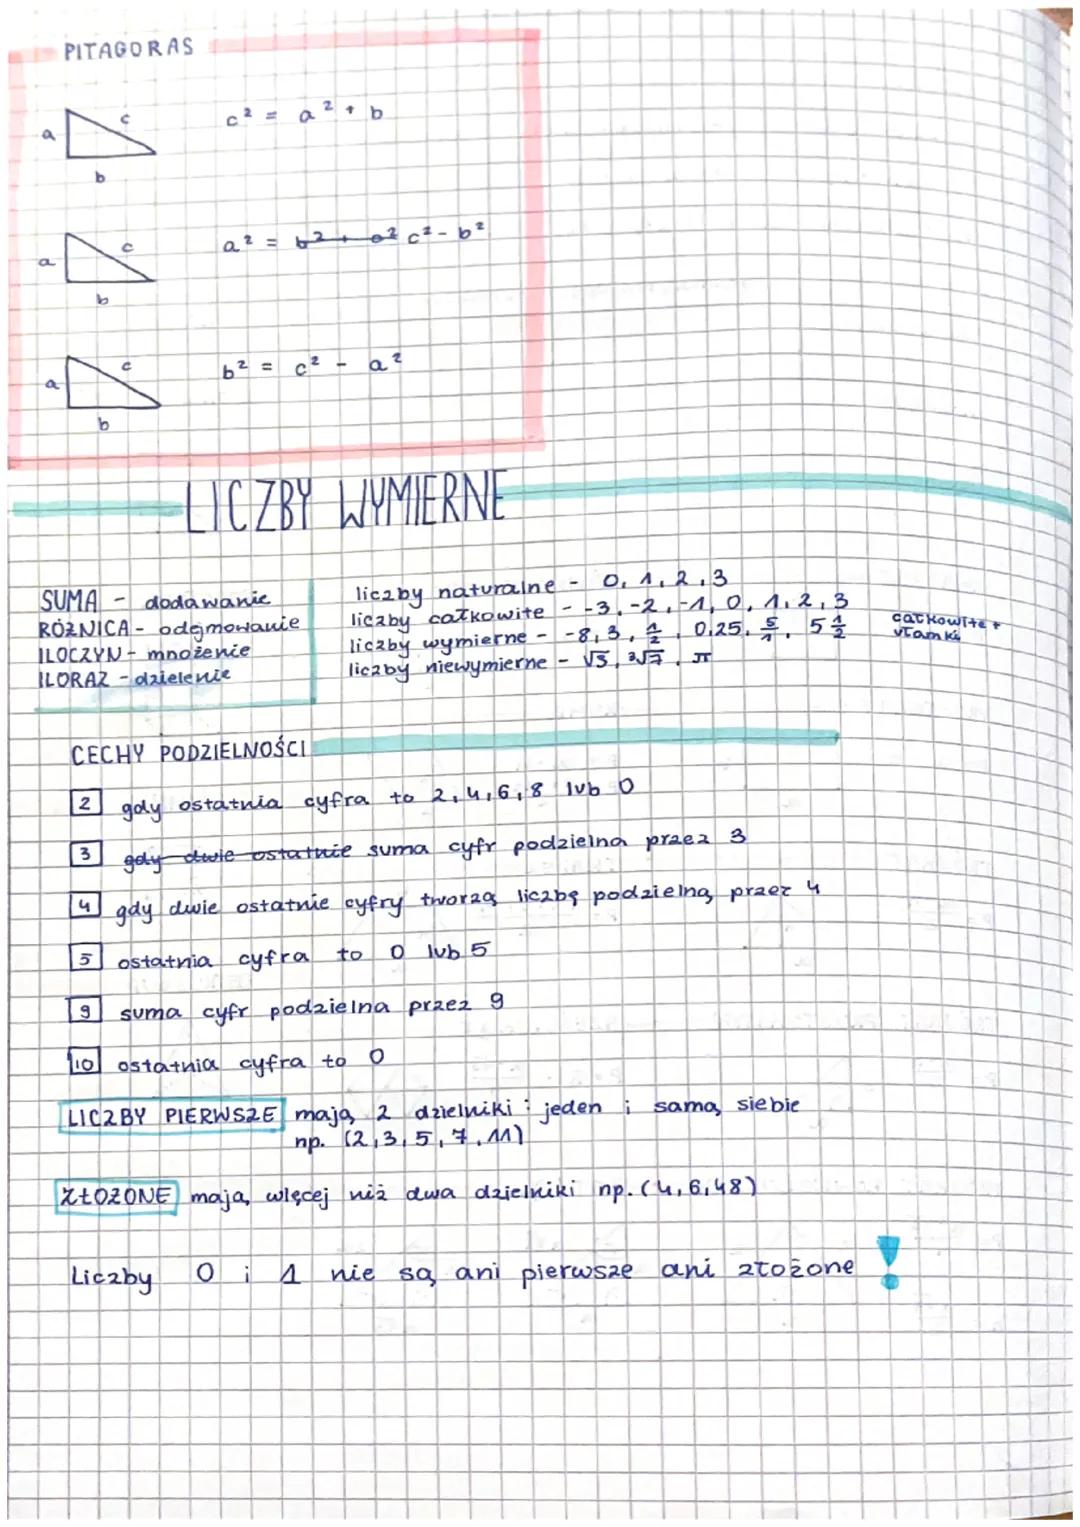 PITAGORAS
a c b
c² = a² + b
a c b
a² = b² + a² c² - b²
a c b
b² = c² - a²
LICZBY WYMIERNE
SUMA - dodawanie
RÓŻNICA - odejmowanie
ILOCZYN - mnożenie
ILORAZ - dzielenie
liczby naturalne - 0, 1, 2, 3
liczby całkowite - -3, -2, -1, 0, 1, 2, 3
liczby wymierne - -8, 3, 1/2, 0,25, 5/1, 5 1/2
całkowite +
ułamki
liczby niewymierne - √3, ³√7, π
CECHY PODZIELNOŚCI
2 gdy ostatnia cyfra to 2, 4, 6, 8 lub 0
3 gdy dwie ostatnie suma cyfr podzielna przez 3
4 gdy dwie ostatnie cyfry tworzą liczbę podzielną przez 4
5 ostatnia cyfra to 0 lub 5
9 suma cyfr podzielna przez 9
10 ostatnia cyfra to 0
LICZBY PIERWSZE mają 2 dzielniki: jeden i samą siebie
np. (2, 3, 5, 7, 11)
ZŁOŻONE mają więcej niż dwa dzielniki np. (4, 6, 48)
Liczby 0 i 1 nie są ani pierwsze ani złożone !